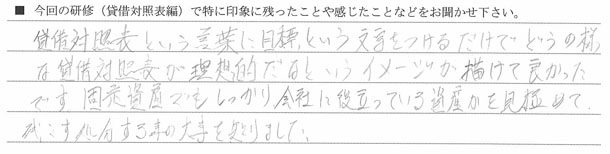 ■ 今回の研修（貸借対照表編）で特に印象に残ったことや感じたことなどをお聞かせ下さい。
貸借対照表という言葉に目標という文字をつけるだけでどうの様
な貸借対照表が理想的だるというイメージが描けて良かった
です 固定資産でもしっかり会社に役立っている資産かを見極めて、
残こす処分する事の大事を知りました。